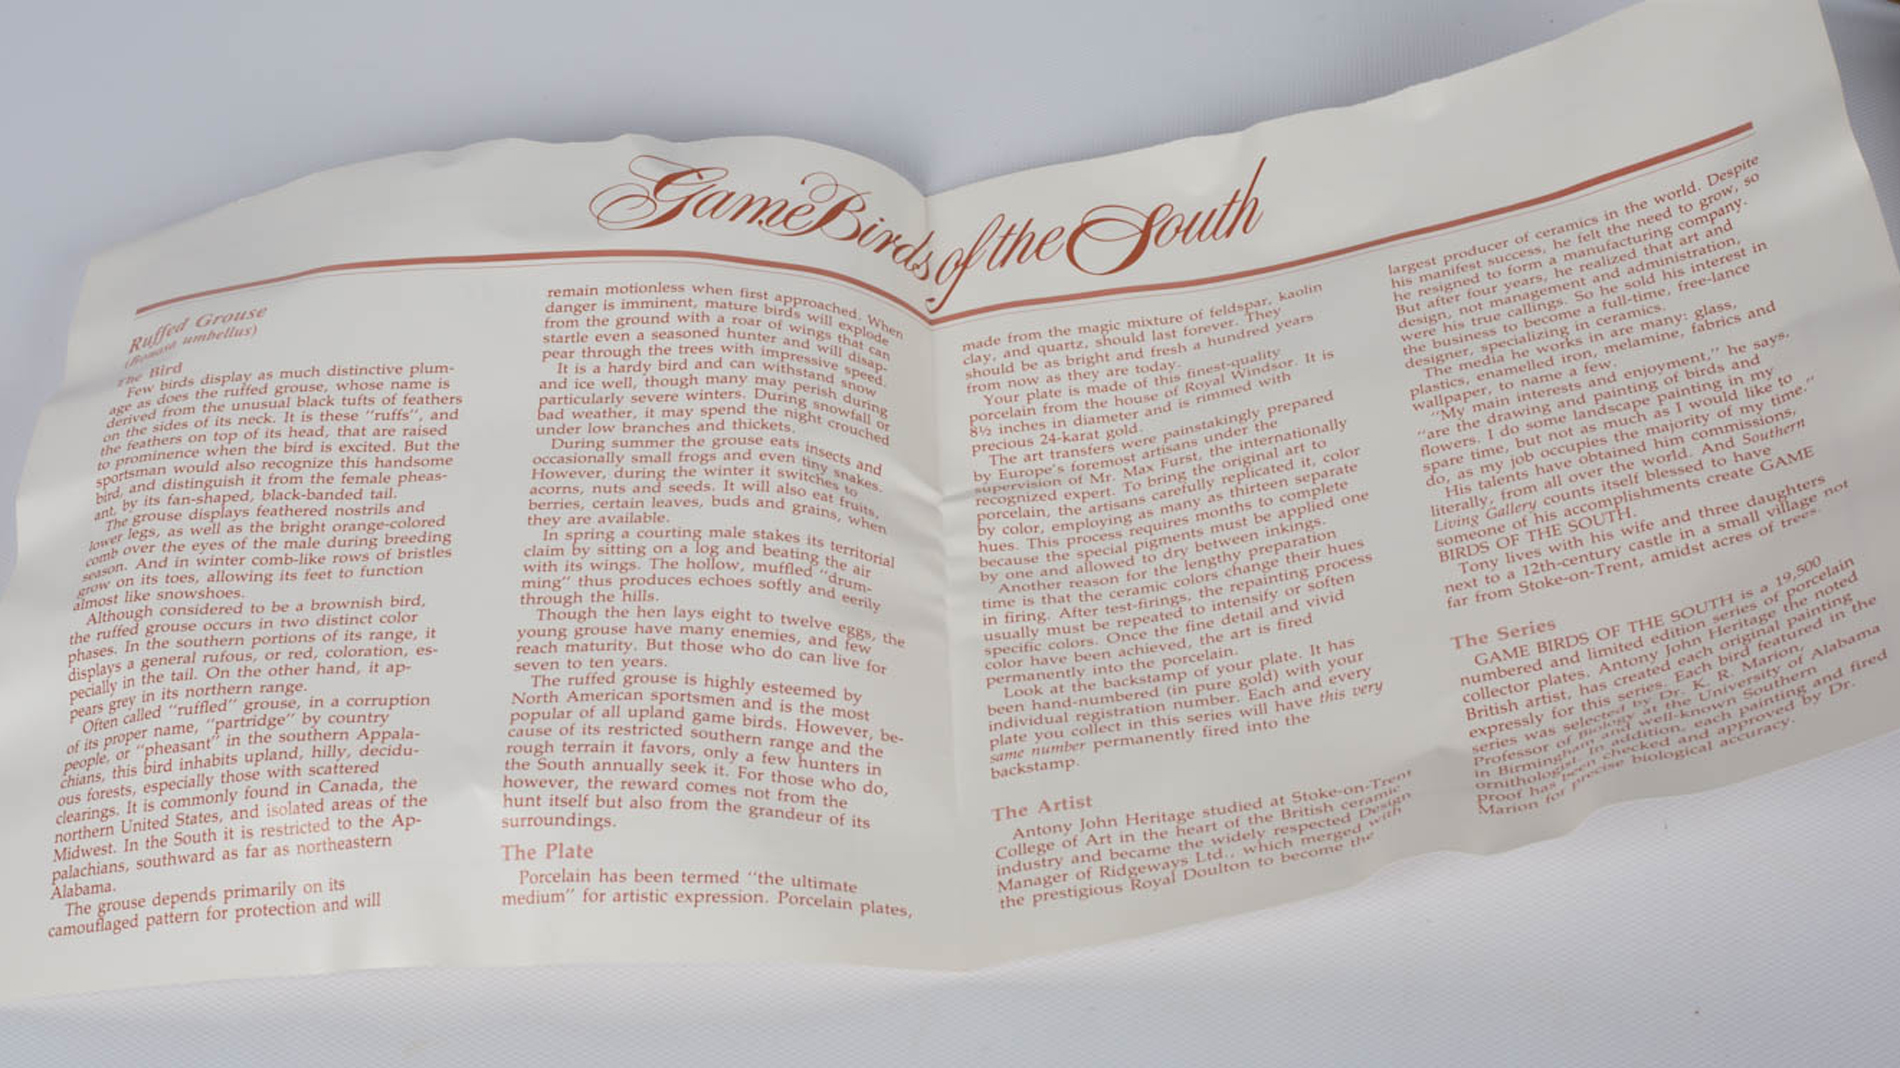 Game Birds of the South
Ruffed Grouse
(Bonasa umbellus)
The Bird
Few birds display as much distinctive plum-
age as does the ruffed grouse, whose name is
derived from the unusual black tufts of feathers
on the sides of its neck. It is these "ruffs", and
the feathers on top of its head, that are raised
to prominence when the bird is excited. But the
sportsman would also recognize this handsome
bird, and distinguish it from the female pheas-
ant, by its fan-shaped, black-banded tail.
The grouse displays feathered nostrils and
lower legs, as well as the bright orange-colored
comb over the eyes of the male during breeding
season. And in winter comb-like rows of bristles
grow on its toes, allowing its feet to function
almost like snowshoes.
Although considered to be a brownish bird,
the ruffed grouse occurs in two distinct color
phases. In the southern portions of its range, it
displays a general rufous, or red, coloration, es-
pecially in the tail. On the other hand, it ap-
pears grey in its northern range.
Often called "ruffled" grouse, in a corruption
of its proper name, "partridge" by country
people, or "pheasant" in the southern Appala-
chians, this bird inhabits upland, hilly, decidu-
ous forests, especially those with scattered
clearings. It is commonly found in Canada, the
northern United States, and isolated areas of the
Midwest. In the South it is restricted to the Ap-
palachians, southward as far as northeastern
Alabama.
The grouse depends primarily on its
camouflaged pattern for protection and will
remain motionless when first approached. When
danger is imminent, mature birds will explode
from the ground with a roar of wings that can
startle even a seasoned hunter and will disap-
pear through the trees with impressive speed.
It is a hardy bird and can withstand snow
and ice well, though many may perish during
particularly severe winters. During snowfall or
bad weather, it may spend the night crouched
under low branches and thickets.
During summer the grouse eats insects and
occasionally small frogs and even tiny snakes.
However, during the winter it switches to
acorns, nuts and seeds. It will also eat fruits,
berries, certain leaves, buds and grains, when
they are available.
In spring a courting male stakes its territorial
claim by sitting on a log and beating the air
with its wings. The hollow, muffled "drum-
ming" thus produces echoes softly and eerily
through the hills.
Though the hen lays eight to twelve eggs, the
young grouse have many enemies, and few
reach maturity. But those who do can live for
seven to ten years.
The ruffed grouse is highly esteemed by
North American sportsmen and is the most
popular of all upland game birds. However, be-
cause of its restricted southern range and the
rough terrain it favors, only a few hunters in
the South annually seek it. For those who do,
however, the reward comes not from the
hunt itself but also from the grandeur of its
surroundings.
The Plate
Porcelain has been termed "the ultimate
medium" for artistic expression. Porcelain plates,
made from the magic mixture of feldspar, kaolin
clay, and quartz, should last forever. They
should be as bright and fresh a hundred years
from now as they are today.
Your plate is made of this finest-quality
porcelain from the house of Royal Windsor. It is
8½ inches in diameter and is rimmed with
precious 24-karat gold.
The art transfers were painstakingly prepared
by Europe's foremost artisans under the
supervision of Mr. Max Furst, the internationally
recognized expert. To bring the original art to
porcelain, the artisans carefully replicated it, color
by color, employing as many as thirteen separate
hues. This process requires months to complete
because the special pigments must be applied one
by one and allowed to dry between inkings.
Another reason for the lengthy preparation
time is that the ceramic colors change their hues
in firing. After test-firings, the repainting process
usually must be repeated to intensify or soften
specific colors. Once the fine detail and vivid
color have been achieved, the art is fired
permanently into the porcelain.
Look at the backstamp of your plate. It has
been hand-numbered (in pure gold) with your
individual registration number. Each and every
plate you collect in this series will have this very
same number permanently fired into the
backstamp.
The Artist
Antony John Heritage studied at Stoke-on-Trent
College of Art in the heart of the British ceramic
industry and became the widely respected Design
Manager of Ridgeways Ltd., which merged with
the prestigious Royal Doulton to become the
largest producer of ceramics in the world. Despite
his manifest success, he felt the need to grow, so
he resigned to form a manufacturing company.
But after four years, he realized that art and
design, not management and administration,
were his true callings. So he sold his interest in
the business to become a full-time, free-lance
designer, specializing in ceramics.
The media he works in are many: glass,
plastics, enamelled iron, melamine, fabrics and
wallpaper, to name a few.
"My main interests and enjoyment," he says,
"are the drawing and painting of birds and
flowers. I do some landscape painting in my
spare time, but not as much as I would like to
do, as my job occupies the majority of my time."
His talents have obtained him commissions,
literally, from all over the world. And Southern
Living Gallery counts itself blessed to have
someone of his accomplishments create GAME
BIRDS OF THE SOUTH.
Tony lives with his wife and three daughters
next to a 12th-century castle in a small village not
far from Stoke-on-Trent, amidst acres of trees.
The Series
GAME BIRDS OF THE SOUTH is a 19,500
numbered and limited edition series of porcelain
collector plates. Antony John Heritage the noted
British artist, has created each original painting
expressly for this series. Each bird featured in the
series was selected by Dr. K. R. Marion,
Professor of Biology at the University of Alabama
in Birmingham and well-known Southern
ornithologist. In addition, each painting and fired
proof has been checked and approved by Dr.
Marion for precise biological accuracy.